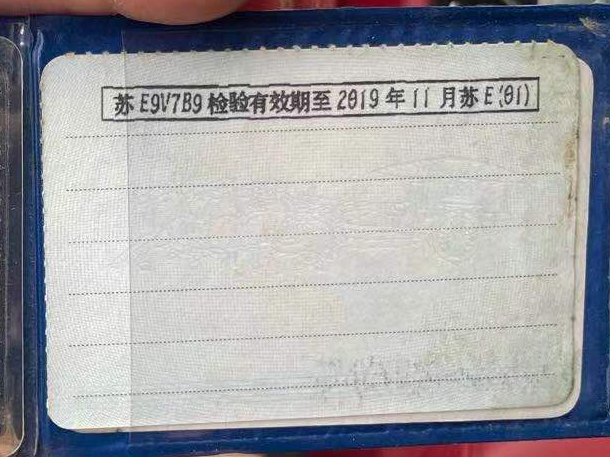 苏E9V7B9检验有效期至2019年11月苏E(01)